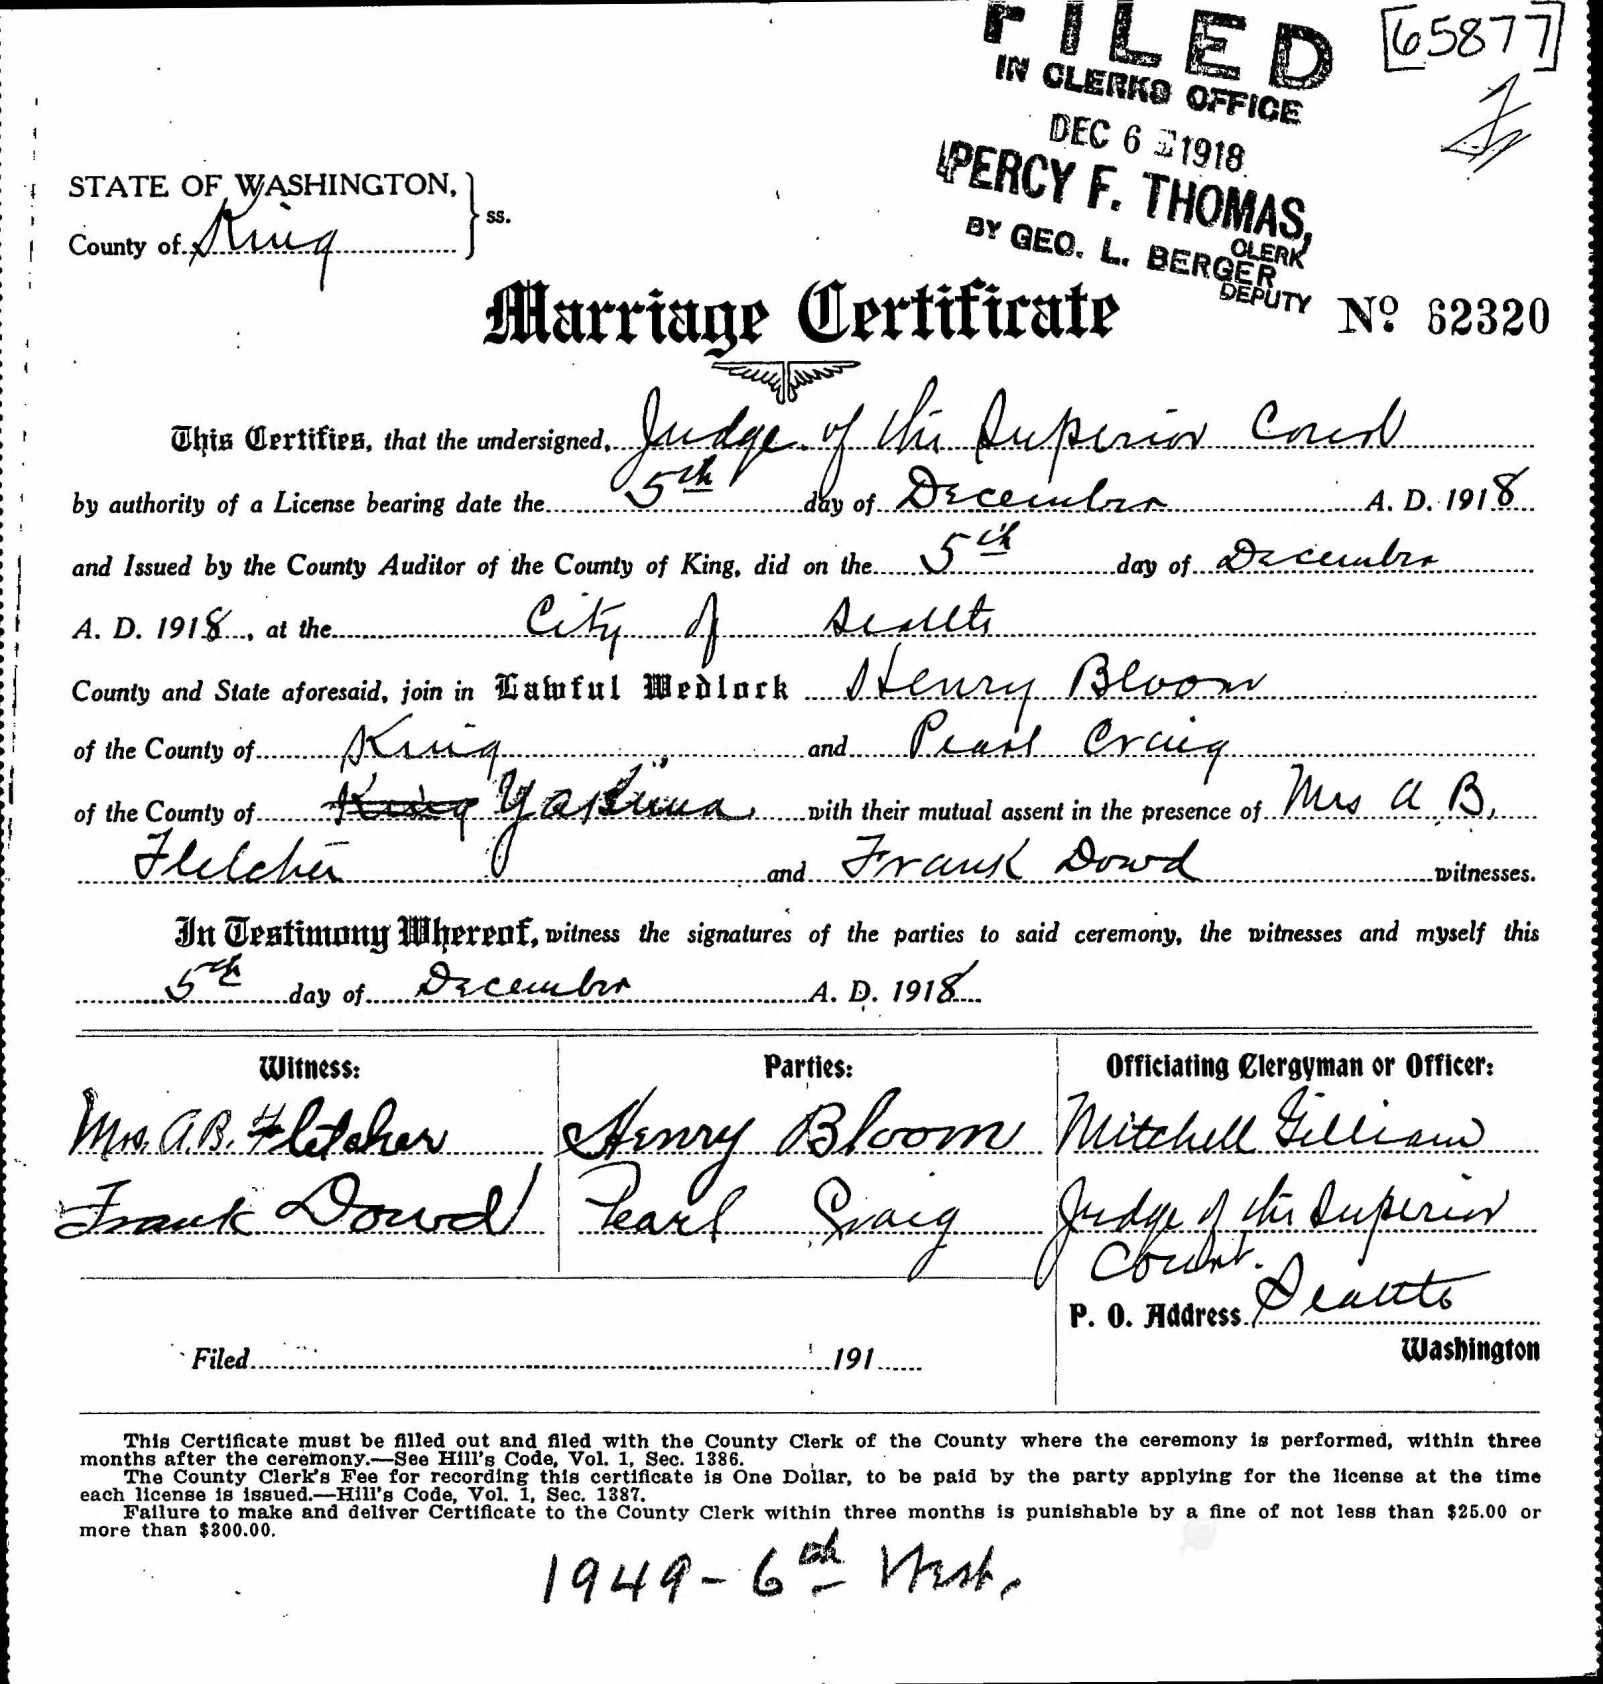 FILED
[65877]
IN CLERKS OFFICE
DEC 6 1918
PERCY F. THOMAS,
CLERK
BY GEO. L. BERGER
DEPUTY
STATE OF WASHINGTON,
ss.
County of King
Marriage Certificate
No. 62320
This Certifies, that the undersigned, Judge of the Superior Court
by authority of a License bearing date the 5th day of December A. D. 1918
and Issued by the County Auditor of the County of King, did on the 5th day of December
A. D. 1918, at the City of Seattle
County and State aforesaid, join in Lawful Wedlock Henry Bloom
of the County of King and Pearl Craig
of the County of King Yakima with their mutual assent in the presence of Mrs A B,
Fletcher and Frank Dowd witnesses.
In Testimony Whereof, witness the signatures of the parties to said ceremony, the witnesses and myself this
5th day of December A. D. 1918
Witness: Parties: Officiating Clergyman or Officer:
Mrs. A.B. Fletcher Henry Bloom Mitchell Gilliam
Frank Dowd Pearl Craig Judge of the Superior
Court.
P. O. Address Seattle
Filed 191
Washington
This Certificate must be filled out and filed with the County Clerk of the County where the ceremony is performed, within three
months after the ceremony.—See Hill's Code, Vol. 1, Sec. 1386.
The County Clerk's Fee for recording this certificate is One Dollar, to be paid by the party applying for the license at the time
each license is issued.—Hill's Code, Vol. 1, Sec. 1387.
Failure to make and deliver Certificate to the County Clerk within three months is punishable by a fine of not less than $25.00 or
more than $300.00.
1949 - 6th West.